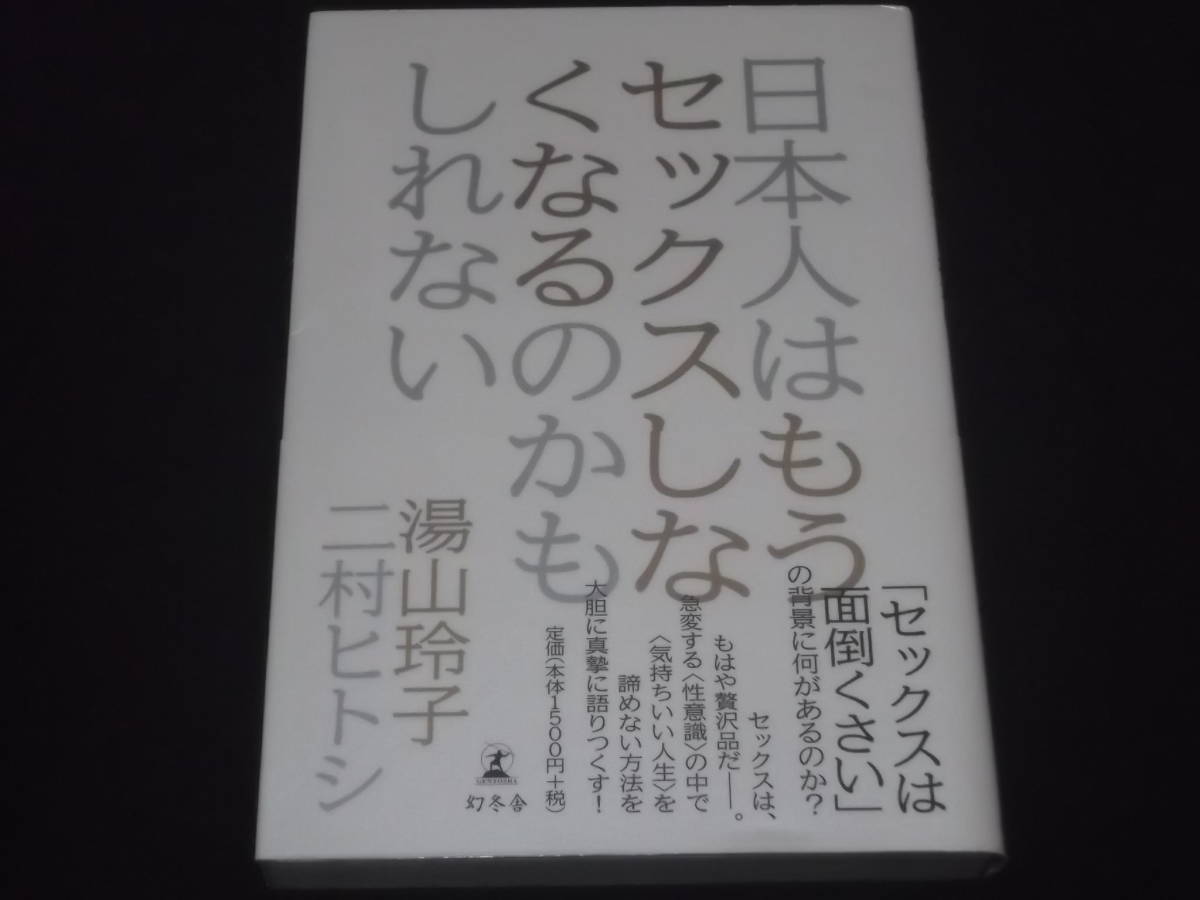 日本人はもう
セックスしな
くなるのかも
しれない
湯山玲子
二村ヒトシ
「セックスは
面倒くさい」
の背景に何があるのか?
セックスは、
もはや贅沢品だ――。
急変する〈性意識〉の中で
〈気持ちいい人生〉を
諦めない方法を
大胆に真摯に語りつくす!
定価(本体1500円+税)
GENTOSHA
幻冬舎